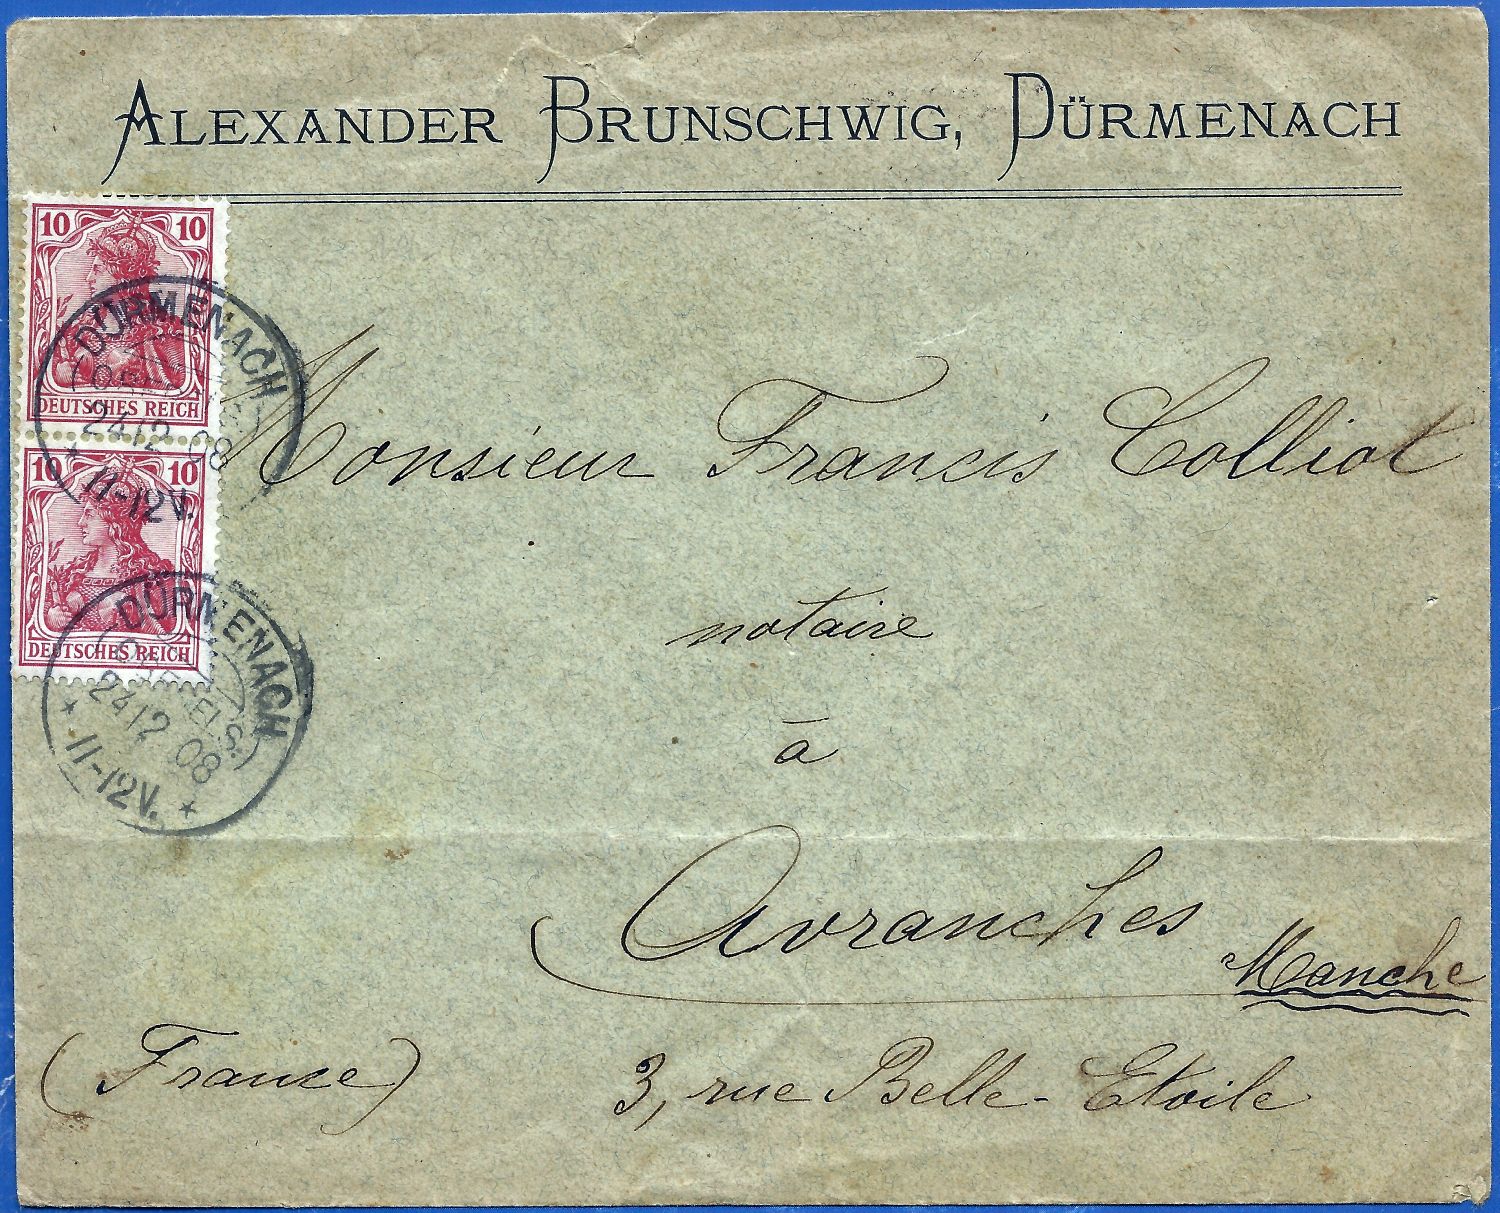 ALEXANDER BRUNSCHWIG, DÜRMENACH
10 10
DEUTSCHES REICH
10 10
DEUTSCHES REICH
DÜRMENACH
24 12 08
* 11-12V.
DÜRMENACH
(OBERELS.)
24 12 08
* 11-12V. *
Monsieur Francis Colliot
notaire
à
Avranches
Manche
(France) 3, rue Belle-Etoile